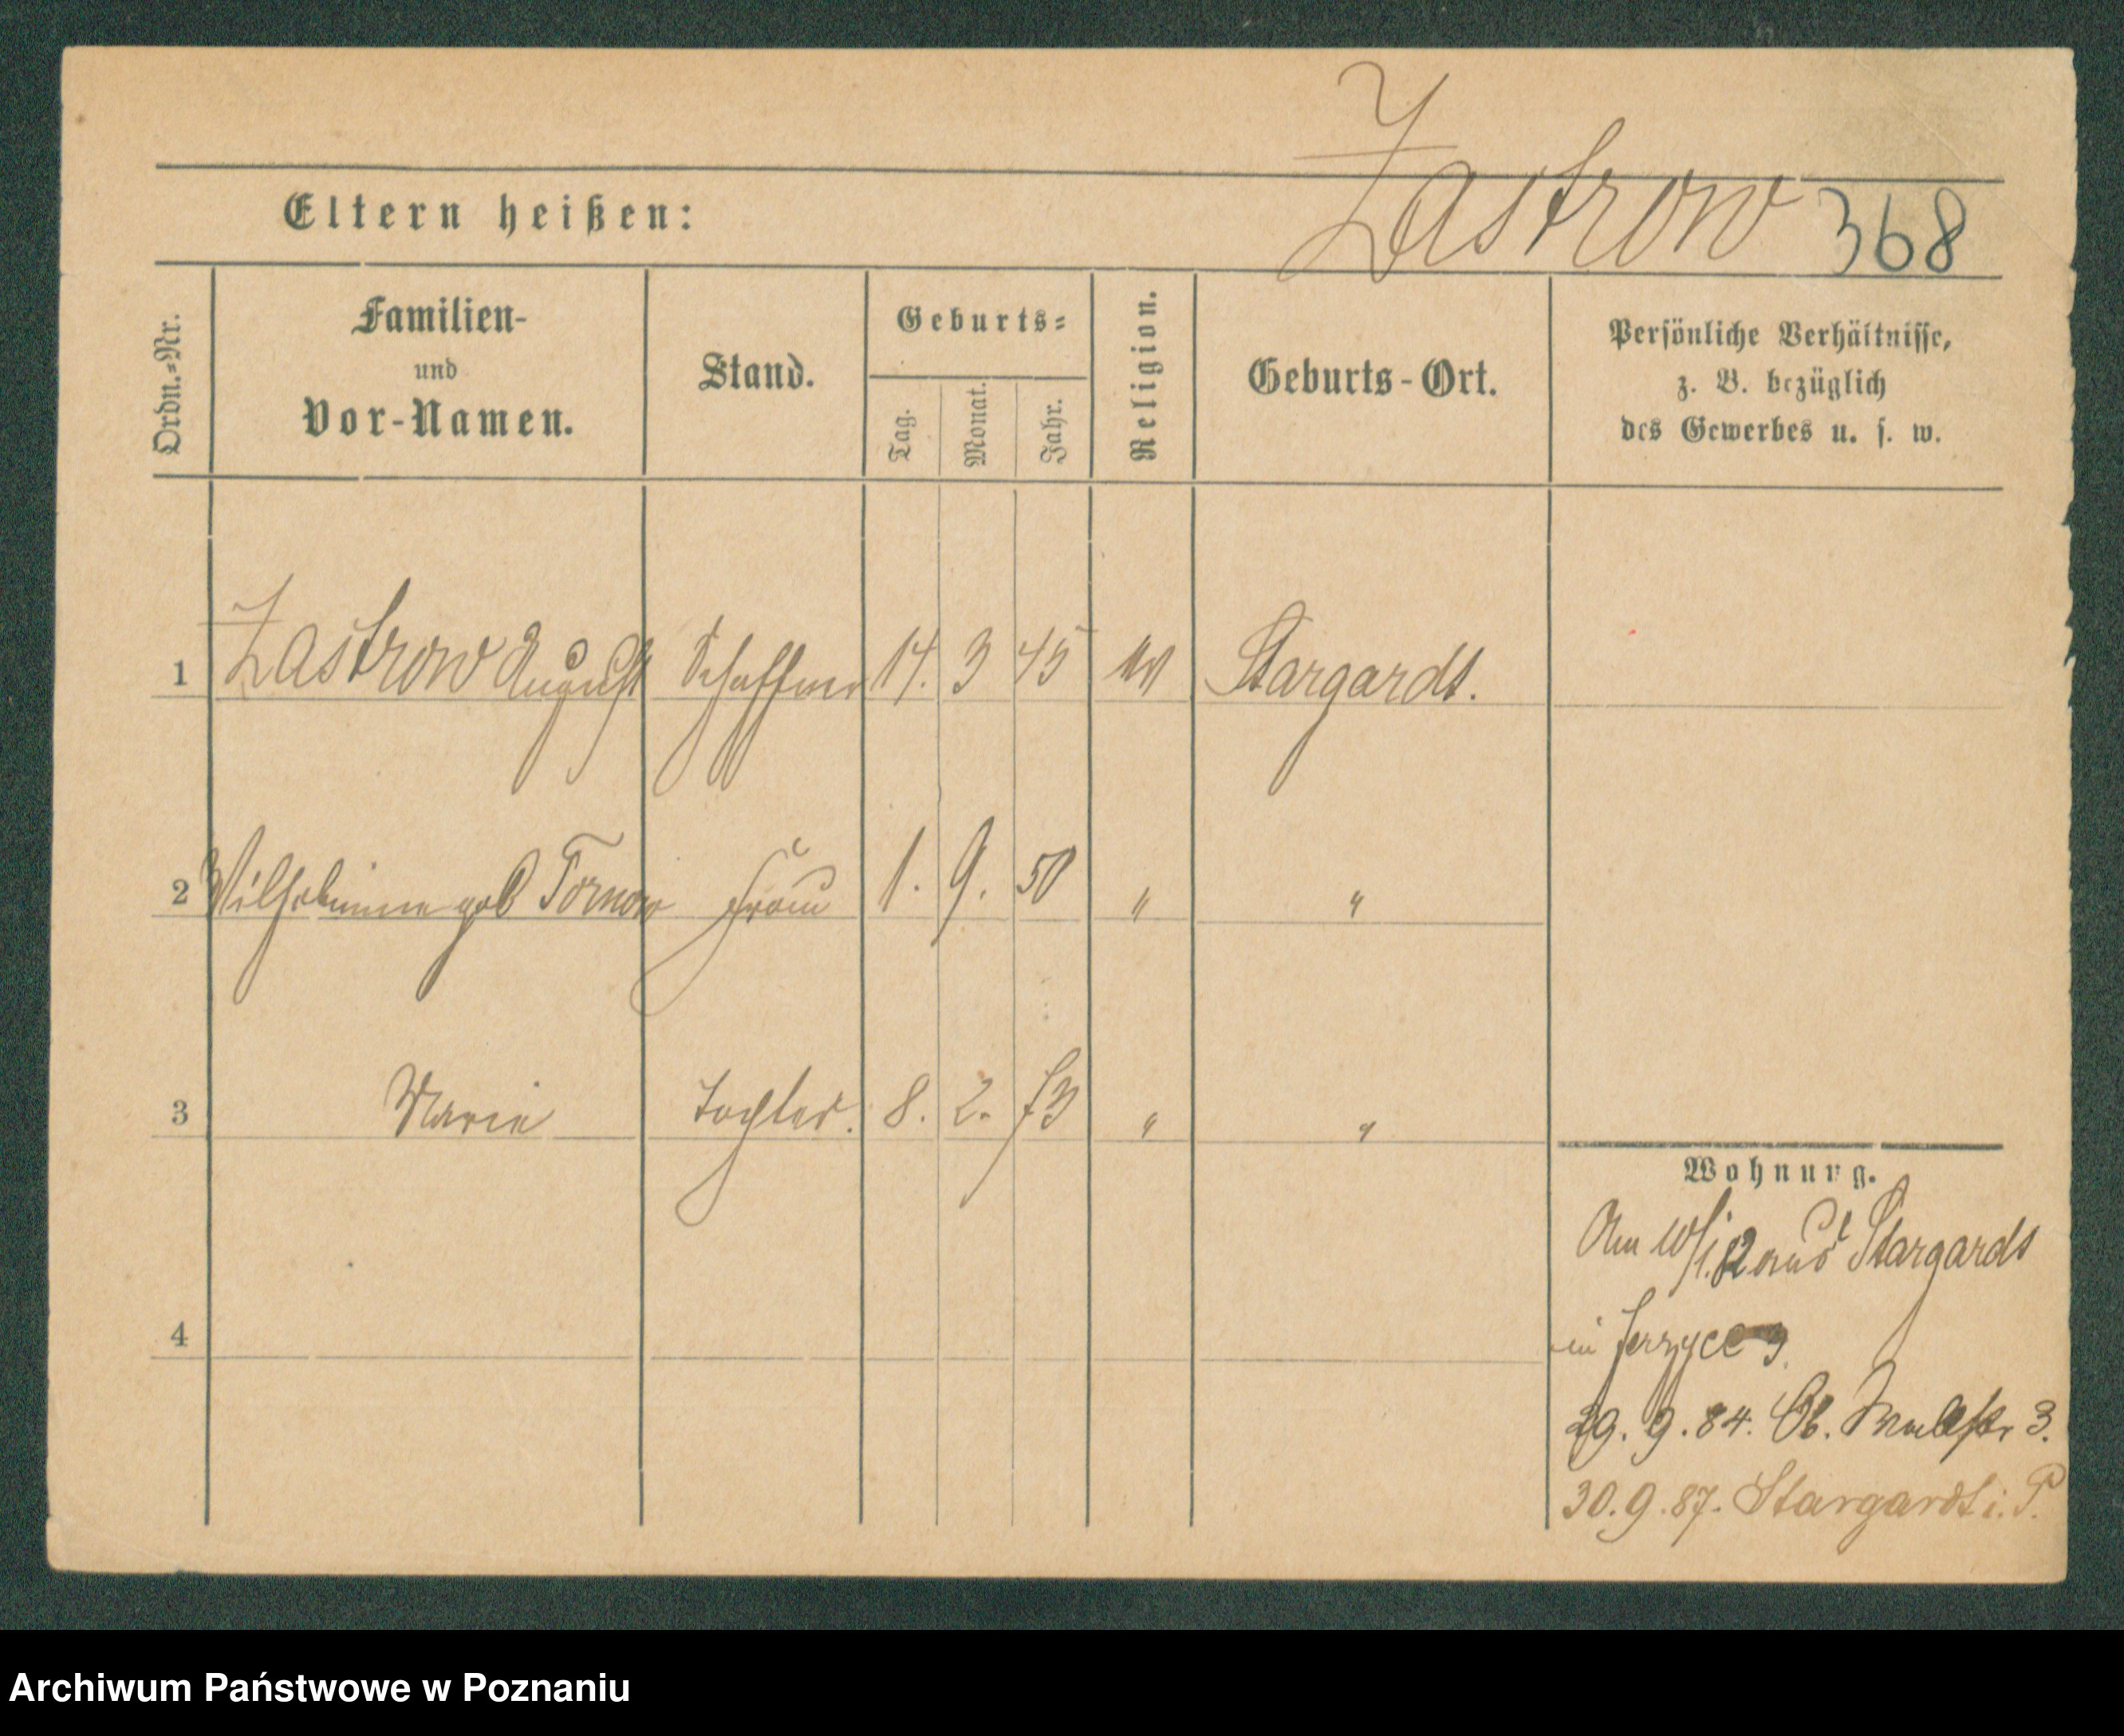 Zastrow 368
Eltern heißen:
Ordn.-Nr.
Familien-
und
Vor-Namen.
Stand.
Geburts-
Tag.
Monat.
Jahr.
Religion.
Geburts-Ort.
Persönliche Verhältnisse,
z. B. bezüglich
des Gewerbes u. s. w.
1 Zastrow August Schaffner 14. 3 45 Stargardt.
2 Wilhelmine geb Tornow Frau 1. 9. 50 " "
3 Marie Tochter. 8. 2. 73 " "
Wohnung.
Am 10/1. 82 aus Stargardt
in Jerzyce 9.
4
29. 9. 84. Ob. 3.
30. 9. 87. Stargardt i. P.
Archiwum Państwowe w Poznaniu